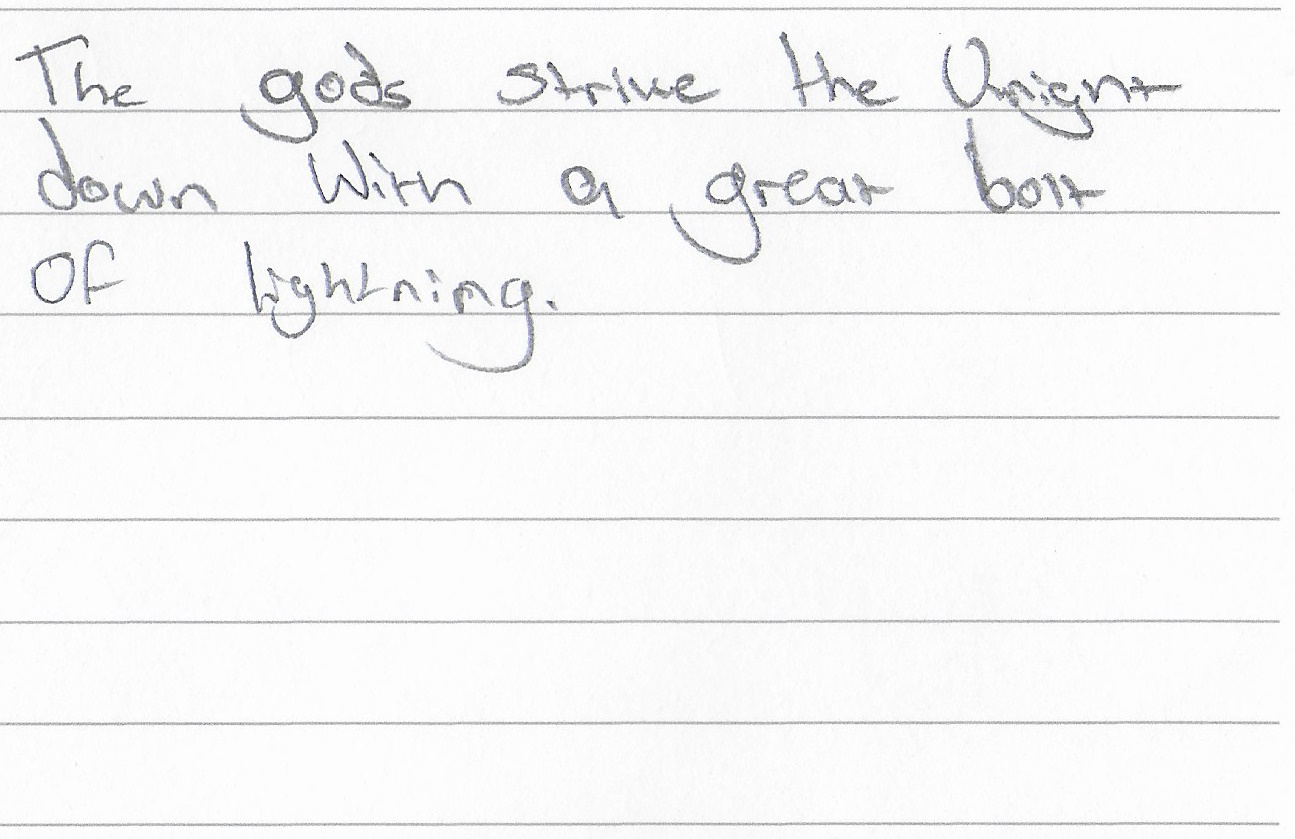 The gods strike the Knight
down With a great bolt
Of lightning.